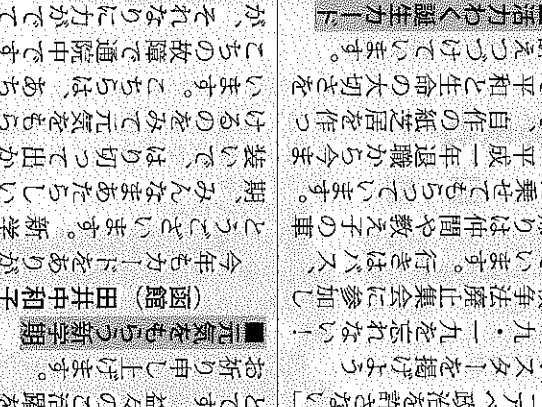 へ政治を許さない」
スターを掲げよう
九・一九を忘れない！
争法廃止集会に参加し
ています。行きはバス、
りは仲間や教え子の車
乗せてもらっています。
平成一年退職から今ま
、自作の紙芝居を作っ
平和と生命の大切さを
えつづけています。
活力わく誕生カード
とです。益々のご活躍
お祈り申し上げます。
■元気をもらう新学期
（函館）田井中和子
今年もカードをありが
とうございます。新学
期、みんなまあたらしい
装いで、はりきって出か
けるのをみて元気をもら
います。こちらは、あち
こちの故障で通院中です
が、それなりに力がでて